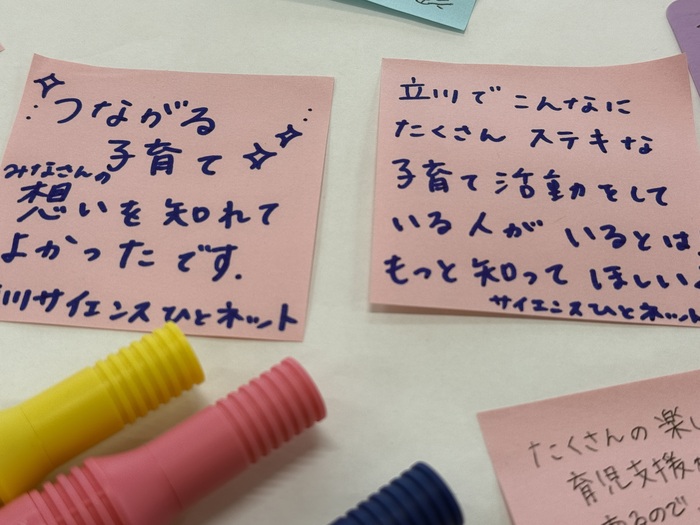 つながる
子育て
みなさんの
想いを知れて
よかったです.
川サイエンスひとネット
立川でこんなに
たくさん ステキな
子育て活動をして
いる人が いるとは
もっと知ってほしい
サイエンスひとネット
たくさんの楽し
育児支援が
あるので